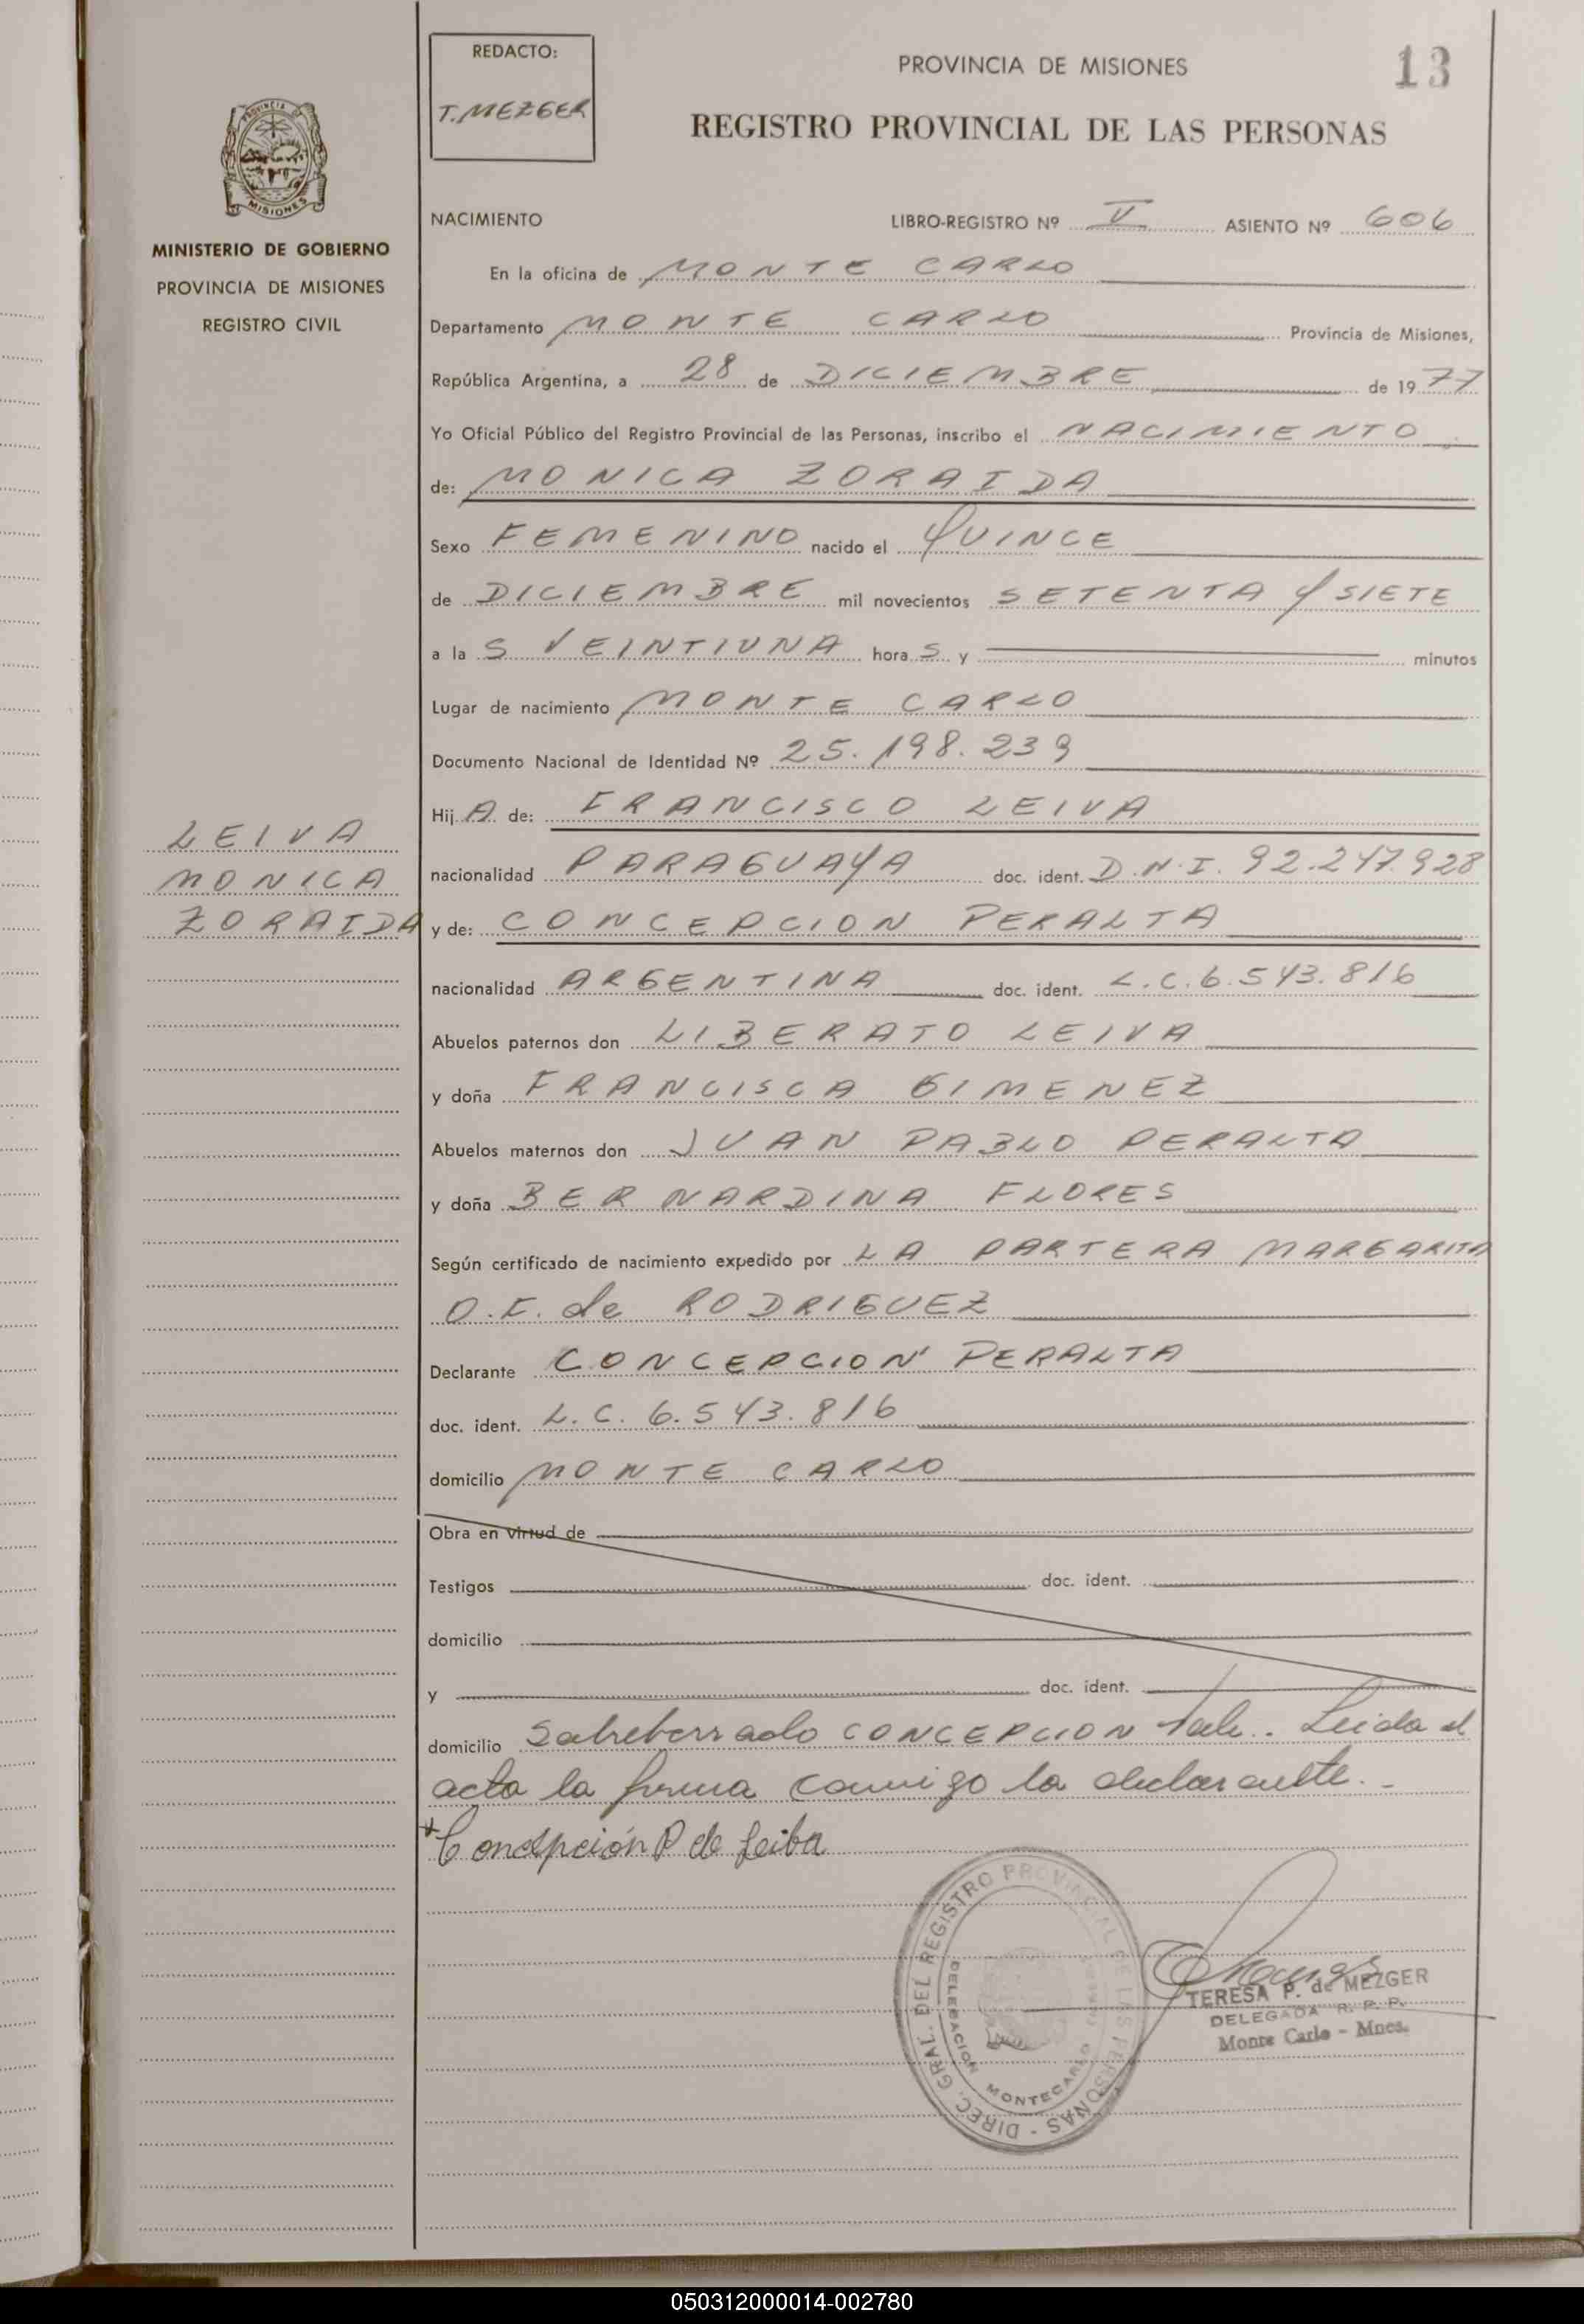 REDACTO:
T. MEZGER
PROVINCIA DE MISIONES
13
REGISTRO PROVINCIAL DE LAS PERSONAS
PROVINCIA DE
MISIONES
MINISTERIO DE GOBIERNO
PROVINCIA DE MISIONES
REGISTRO CIVIL
NACIMIENTO LIBRO-REGISTRO Nº V ASIENTO Nº 606
En la oficina de MONTE CARLO
Departamento MONTE CARLO Provincia de Misiones,
República Argentina, a 28 de DICIEMBRE de 1977
Yo Oficial Público del Registro Provincial de las Personas, inscribo el NACIMIENTO
de: MONICA ZORAIDA
Sexo FEMENINO nacido el QUINCE
de DICIEMBRE mil novecientos SETENTA Y SIETE
a la S VEINTIUNA hora S y minutos
Lugar de nacimiento MONTE CARLO
Documento Nacional de Identidad Nº 25.198.239
Hij A de: FRANCISCO LEIVA
LEIVA
MONICA
ZORAIDA
nacionalidad PARAGUAYA doc. ident. D.N.I. 92.247.928
y de: CONCEPCION PERALTA
nacionalidad ARGENTINA doc. ident. L.C. 6.543.816
Abuelos paternos don LIBERATO LEIVA
y doña FRANCISCA GIMENEZ
Abuelos maternos don JUAN PABLO PERALTA
y doña BERNARDINA FLORES
Según certificado de nacimiento expedido por LA PARTERA MARGARITA
O.F. de RODRIGUEZ
Declarante CONCEPCION PERALTA
doc. ident. L.C. 6.543.816
domicilio MONTE CARLO
Obra en virtud de
Testigos doc. ident.
domicilio
y doc. ident.
domicilio Sobreborrado CONCEPCION Vale.. Leida el
acta la firma conmigo la declarante.-
Concepción P de Leiba
DIREC. GRAL. DEL REGISTRO PROVINCIAL DE LAS PERSONAS
DELEGACION MONTECARLO
TERESA P. de MEZGER
DELEGADA R. P. P.
Monte Carlo - Mnes.
050312000014-002780